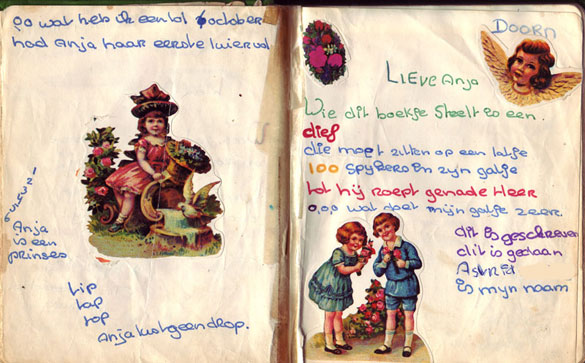 Zo wat heb ik een lol 6 october
had Anja haar eerste luier vol
Anja
is een
prinses
tip
tap
top
Anja lust geen drop.
Doorn
Lieve Anja
Wie dit boekje steelt is een
dief
die moet zitten op een latje
100 spijkers in zijn gatje
tot hij roept genade Heer
o,o,o wat doet mijn gatje zeer
dit is geschreven
dit is gedaan
Astrid
is mijn naam